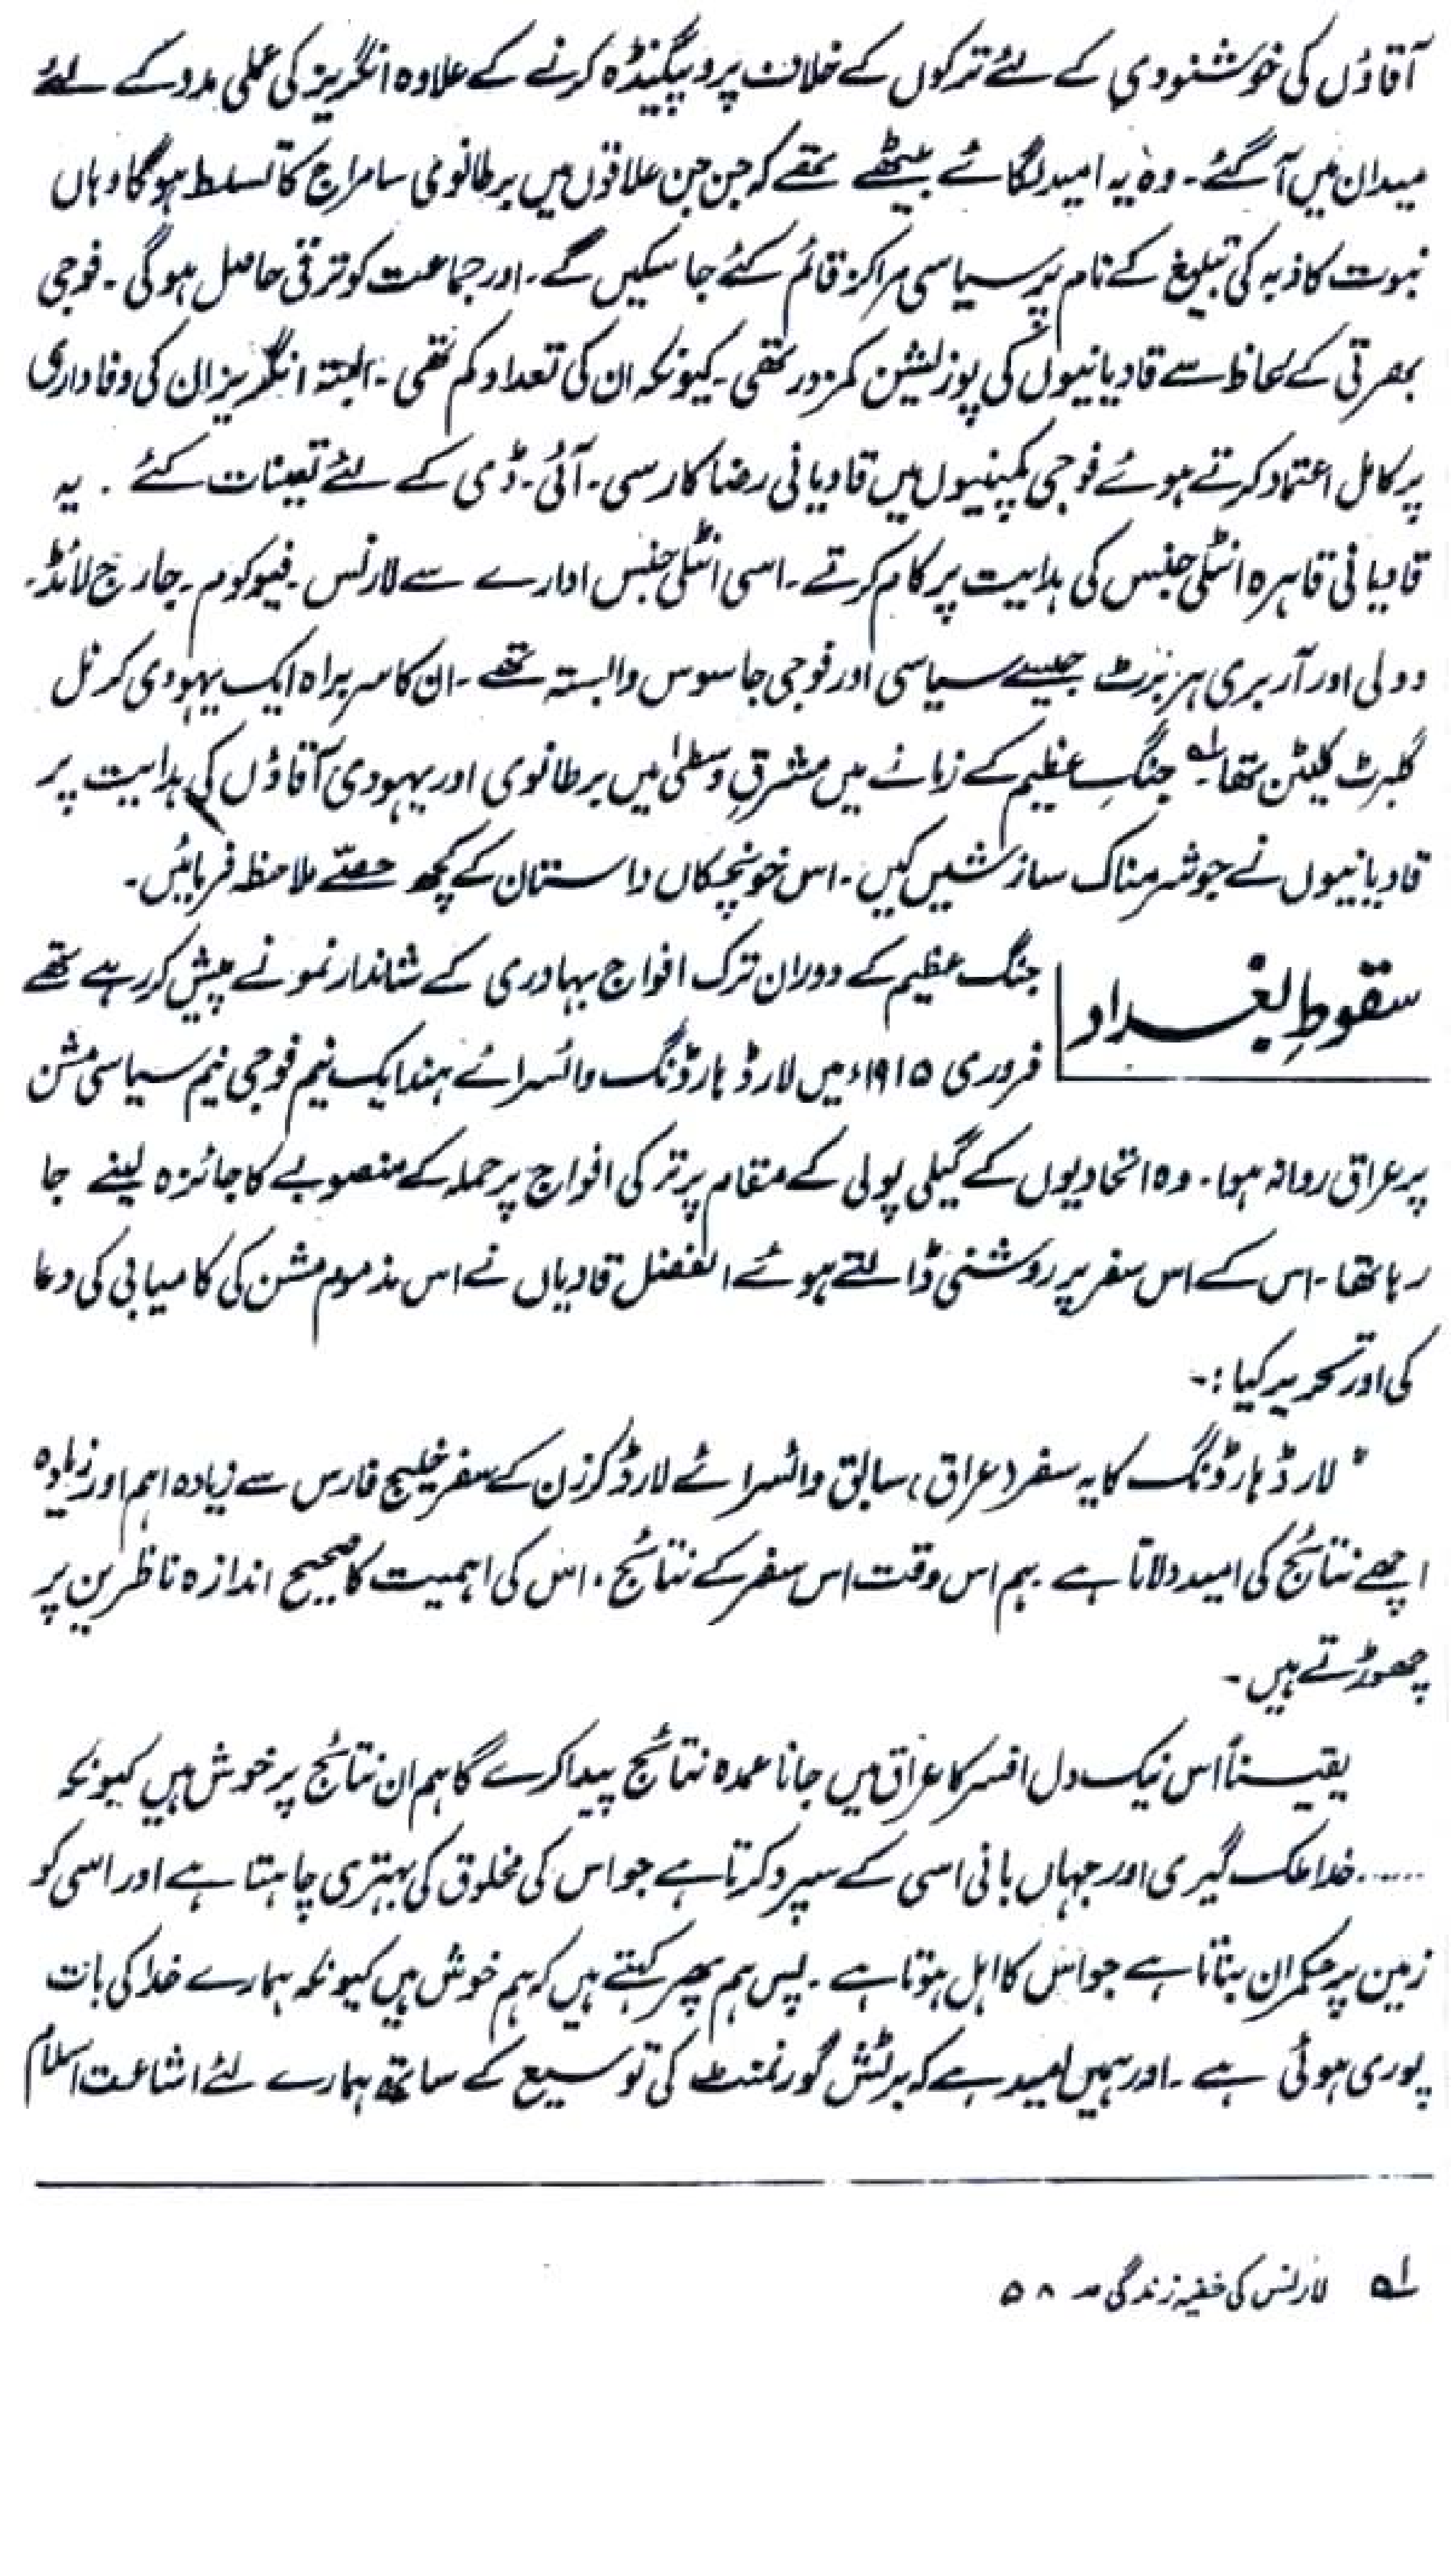 آقاؤں کی خوشنودی کے لئے ترکوں کے خلاف پروپیگنڈہ کرنے کے علاوہ انگریز کی عملی مدد کے لئے
میدان میں آ گئے۔ وہ یہ امید لگائے بیٹھے تھے کہ جن جن علاقوں میں برطانوی سامراج کا تسلط ہو گا وہاں
نبوت کاذبہ کی تبلیغ کے نام پر سیاسی مراکز قائم کئے جا سکیں گے۔ اور جماعت کو ترقی حاصل ہو گی۔ فوجی
بھرتی کے لحاظ سے قادیانیوں کی پوزیشن کمزور تھی۔ کیونکہ ان کی تعداد کم تھی۔ البتہ انگریز ان کی وفاداری
پر کامل اعتماد کرتے ہوئے فوجی کمپنیوں میں قادیانی رضاکار سی۔ آئی۔ ڈی کے لئے تعینات کئے۔ یہ
قادیانی قاہرہ انٹیلی جنس کی ہدایت پر کام کرتے۔ اسی انٹیلی جنس ادارے سے لارنس۔ فیوکوم۔ جارج لائڈ۔
وولی اور آربری ہربرٹ جیسے سیاسی اور فوجی جاسوس وابستہ تھے۔ ان کا سربراہ ایک یہودی کرنل
گلبرٹ کلیٹن تھا۔ لہ جنگِ عظیم کے زمانے میں مشرقِ وسطیٰ میں برطانوی اور یہودی آقاؤں کی ہدایت پر
قادیانیوں نے جو شرمناک سازشیں کیں۔ اس خونچکاں داستان کے کچھ حصّے ملاحظہ فرمائیں۔
سقوطِ بغداد
جنگ عظیم کے دوران ترک افواج بہادری کے شاندار نمونے پیش کر رہے تھے
فروری ۱۹۱۵ء میں لارڈ ہارڈنگ وائسرائے ہند ایک نیم فوجی نیم سیاسی مشن
پر عراق روانہ ہوا۔ وہ اتحادیوں کے گیلی پولی کے مقام پر ترکی افواج پر حملہ کے منصوبے کا جائزہ لینے جا
رہا تھا۔ اس کے اس سفر پر روشنی ڈالتے ہوئے الفضل قادیاں نے اس مذموم مشن کی کامیابی کی دعا
کی اور تحریر کیا :-
"لارڈ ہارڈنگ کا یہ سفر (عراق) سابق وائسرائے لارڈ کرزن کے سفر خلیج فارس سے زیادہ اہم اور زیادہ
اچھے نتائج کی امید دلاتا ہے۔ ہم اس وقت اس سفر کے نتائج، اس کی اہمیت کا صحیح اندازہ ناظرین پر
چھوڑتے ہیں۔
یقیناً اس نیک دل افسر کا عراق میں جانا عمدہ نتائج پیدا کرے گا ہم ان نتائج پر خوش ہیں کیونکہ
...... خدا ملک گیری اور جہاں بانی اسی کے سپرد کرتا ہے جو اس کی مخلوق کی بہتری چاہتا ہے اور اسی کو
زمین پر حکمران بناتا ہے جو اس کا اہل ہوتا ہے۔ پس ہم پھر کہتے ہیں کہ ہم خوش ہیں کیونکہ ہمارے خدا کی بات
پوری ہوئی ہے۔ اور ہمیں امید ہے کہ برٹش گورنمنٹ کی توسیع کے ساتھ ہمارے لئے اشاعت اسلام
لہ لارنس کی خفیہ زندگی صہ ۵۸